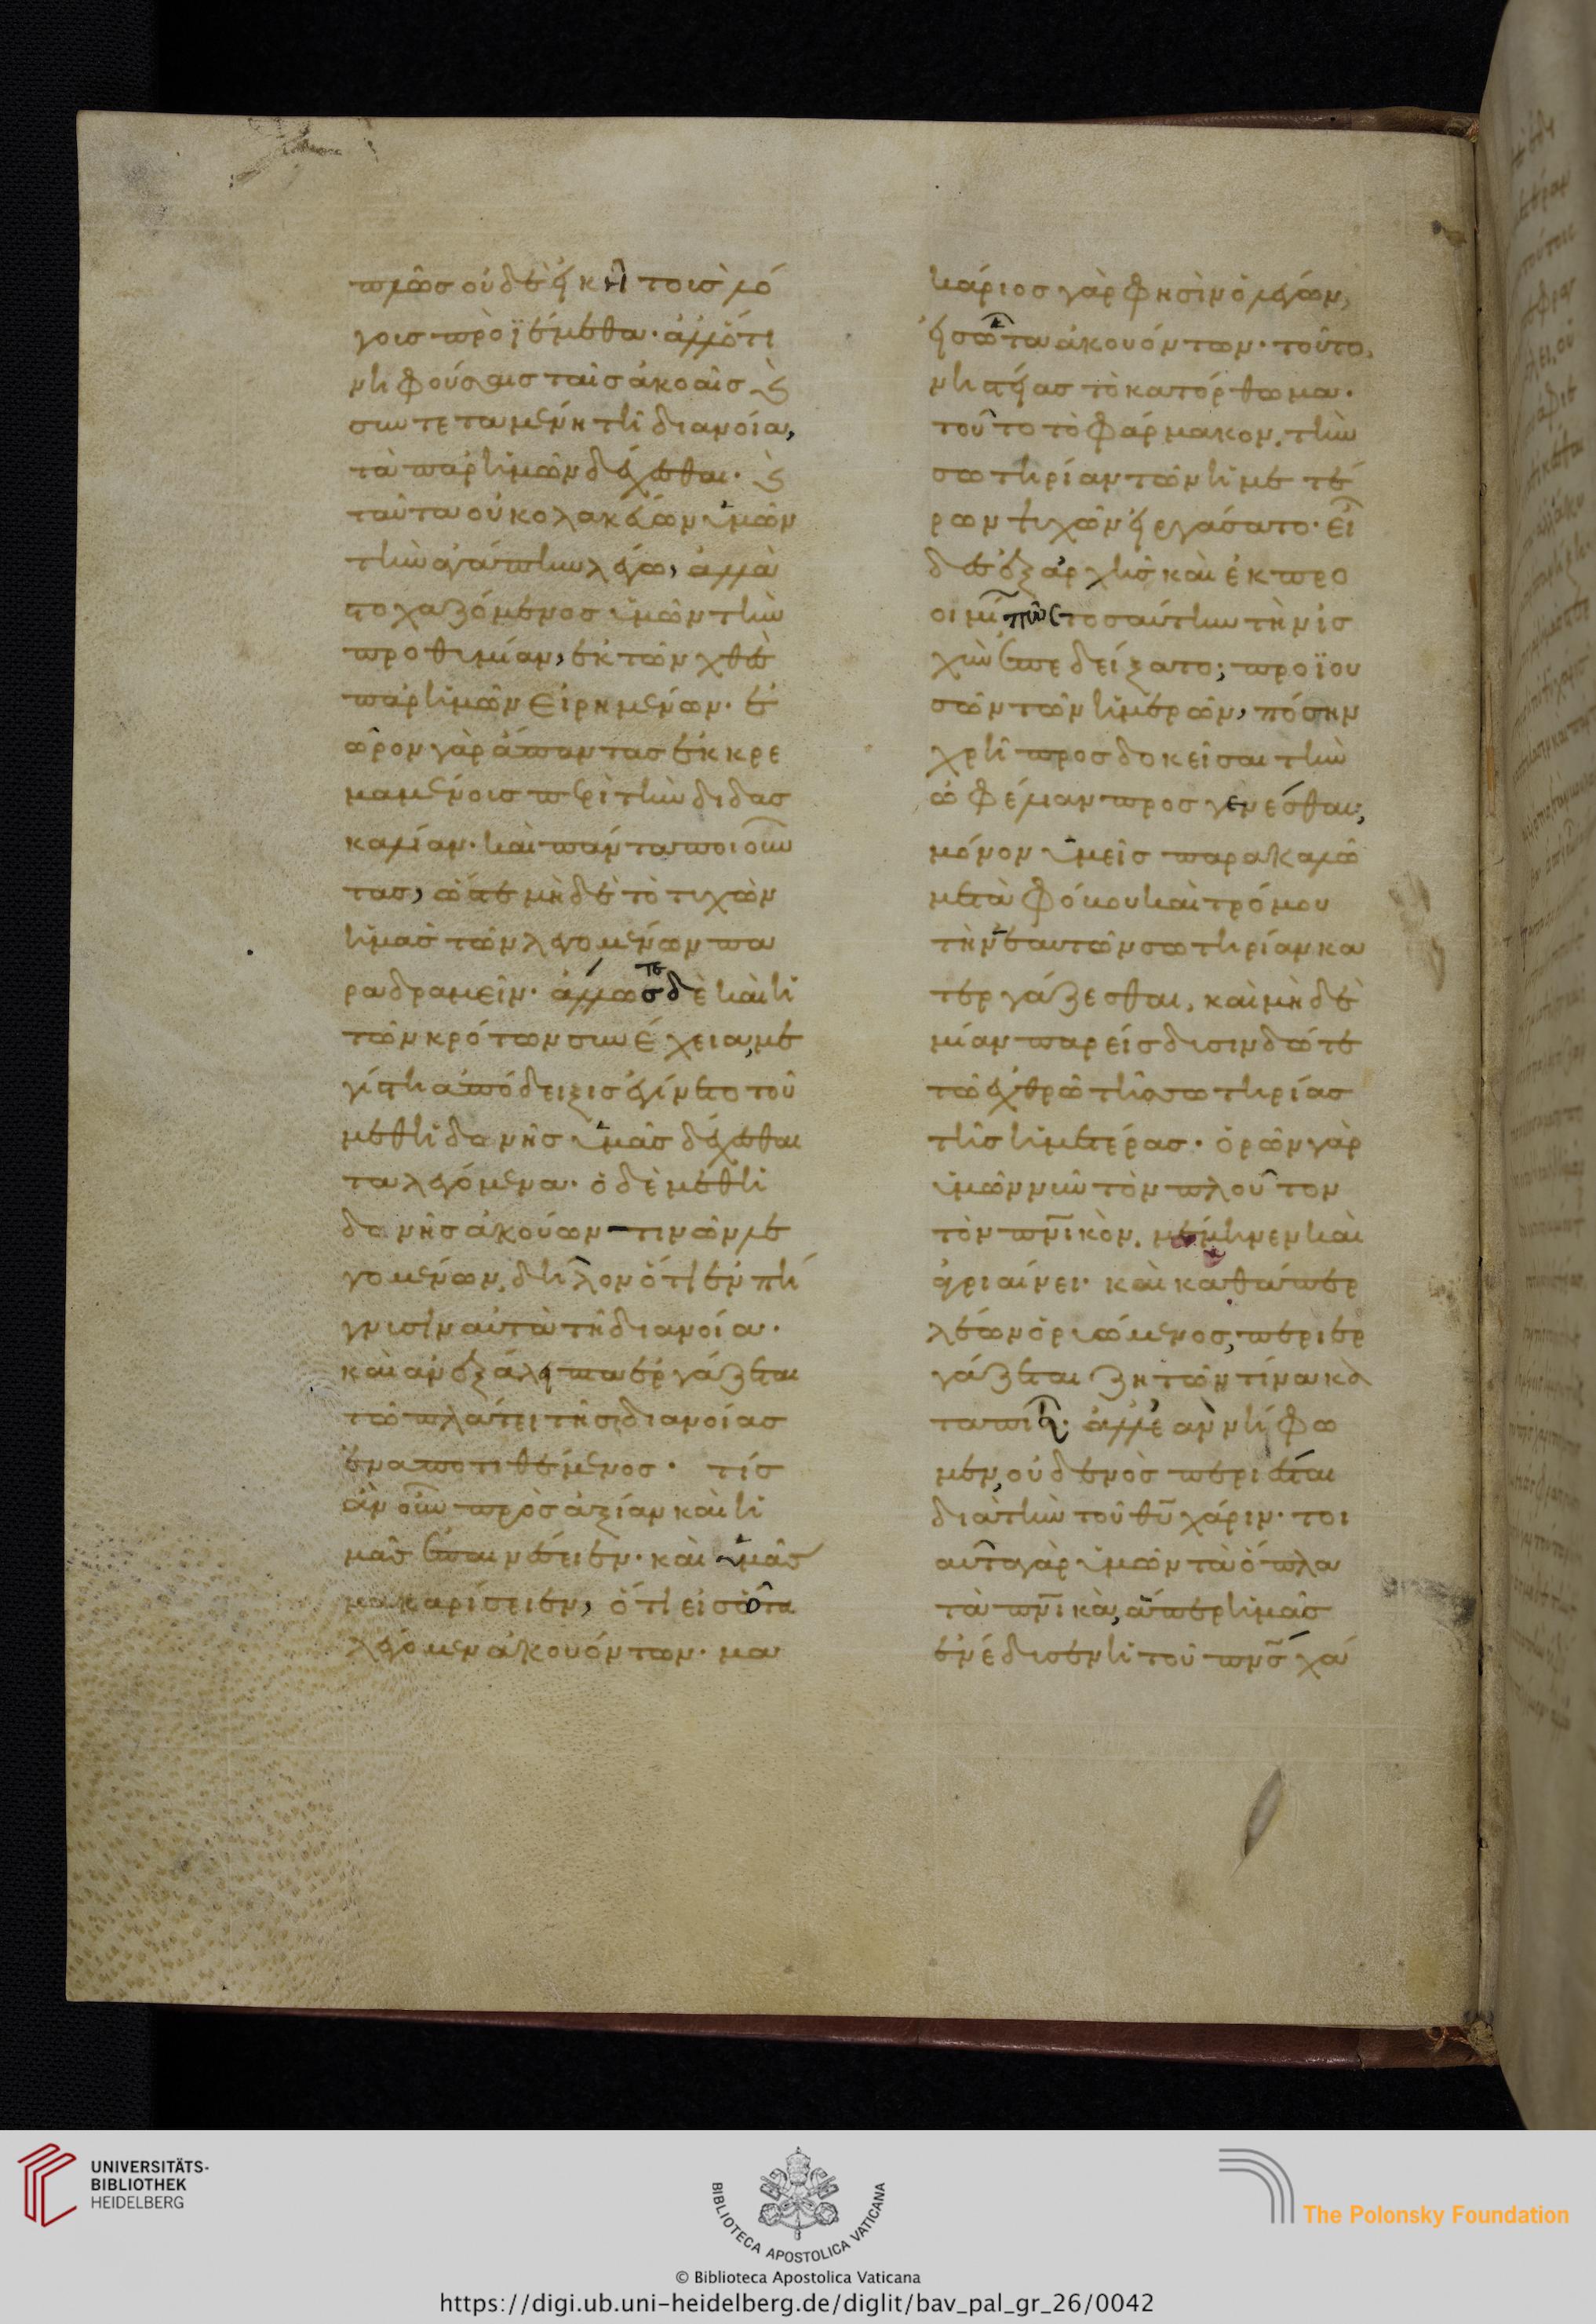 πλῶς οὐδὲ εἰκῆ τοῖς λό
γοις προϊέμεθα· ἀλλ' ὅτι
νηφούσαις ταῖς ἀκοαῖς καὶ
συντεταμένη τῆ διανοία,
τὰ παρ' ἡμῶν δέχεσθαι· καὶ
ταῦτα οὐ κολακεύων ὑμῶν
τὴν ἀγάπην λέγω, ἀλλὰ
στοχαζόμενος ὑμῶν τὴν
προθυμίαν, ἐκ τῶν χθὲς
παρ' ἡμῶν εἰρημένων· ἑ
ώρον γὰρ ἅπαντας ἐκκρε
μαμένοις περὶ τὴν διδασ
καλίαν· καὶ πάντα ποιοῦν
τας, ὥστε μὴδὲ τὸ τυχὼν
ἡμᾶς τῶν λεγομένων πα
ραδραμεῖν· ἄλλως τε δὲ καὶ ἡ
τῶν κρότων συνέχεια, με
γίστη ἀπόδειξις ἐγίνετο τοῦ
μεθ' ἡδονῆς ὑμᾶς δέχεσθαι
τὰ λεγόμενα· ὁ δὲ μεθ' ἡ
δονῆς ἀκούων τινῶν λε
γομένων, δῆλον ὅτι ἐν πή
γνισιν αὐτὰ τῆ διανοία·
καὶ ἀνεξάλειπτα ἐργάζεται
τῶ πλάτει τῆς διανοίας
ἐναποτιθέμενος· τίς
ἂν οὖν πρὸς ἀξίαν καὶ ἡ
μᾶς ἐπαινέσειεν· καὶ ὑμᾶς
μακαρίσειεν, ὅτι εἰς ὦτα
λέγομεν ἀκουόντων· μα
κάριος γὰρ φησὶν ὁ λέγων,
εἰς ὦτα ἀκουόντων· τοῦτο,
νηστείας τὸ κατόρθωμα·
τοῦτο τὸ φάρμακον, τὴν
σωτηρίαν τῶν ἡμετέ
ρων ψυχῶν εἰργάσατο· εἰ
δὲ ἐξ ἀρχῆς καὶ ἐκ προ
οιμίων τοσαύτην τὴν ἰσ
χὺν ἐπεδείξατο; προϊου
σῶν τῶν ἡμερῶν, πόσην
χρὴ προσδοκεῖσαι τὴν
ὠφέλιαν προσγενέσθαι,
μόνον ὑμεῖς παρακαλῶ
μετὰ φόβου καὶ τρόμου
τὴν ἑαυτῶν σωτηρίαν κα
τεργάζεσθαι, καὶ μὴδὲ
μίαν παρείσδισιν δώτε
τῶ ἐχθρῶ τῆς σωτηρίας
τῆς ἡμετέρας· ὁρῶν γὰρ
ὑμῶν νῦν τὸν πλοῦτον
τὸν πνικὸν, μέμηνεν καὶ
ἀγριαίνει· καὶ καθάπερ
λέων ὀριώμενος, περιερ
γάζεται ζητῶν τίνα κα
ταπίη· ἀλλ' ἐὰν νήφω
μεν, οὐδενὸς περιέσται
διὰ τὴν τοῦ θυ χάριν· τοι
αῦτα γὰρ ὑμῶν τὰ ὅπλα
τὰ πνικὰ, ἅπερ ἡμᾶς
ἐνέδισεν ἡ τοῦ πνς χά
UNIVERSITÄTS-
BIBLIOTHEK
HEIDELBERG
BIBLIOTECA APOSTOLICA VATICANA
© Biblioteca Apostolica Vaticana
The Polonsky Foundation
https://digi.ub.uni-heidelberg.de/diglit/bav_pal_gr_26/0042